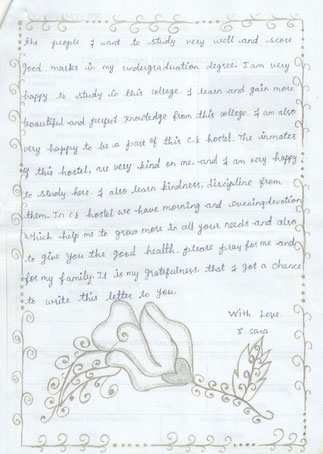 the people. I want to study very well and score
good marks in my undergraduation degree. I am very
happy to study in this college. I learn and gain more
beautiful and perfect knowledge from this college. I am also
very happy to be a part of this C.E hostel. The inmates
of this hostel, are very kind on me. and I am very happy
to study here. I also learn kindness, discipline from
them. In CE hostel we have morning and evening devotion
which help me to grow more in all your needs and also
to give you the good health. please pray for me and
for my family. It is my gratefulness that I got a chance
to write this letter to you.
With Love
Sara